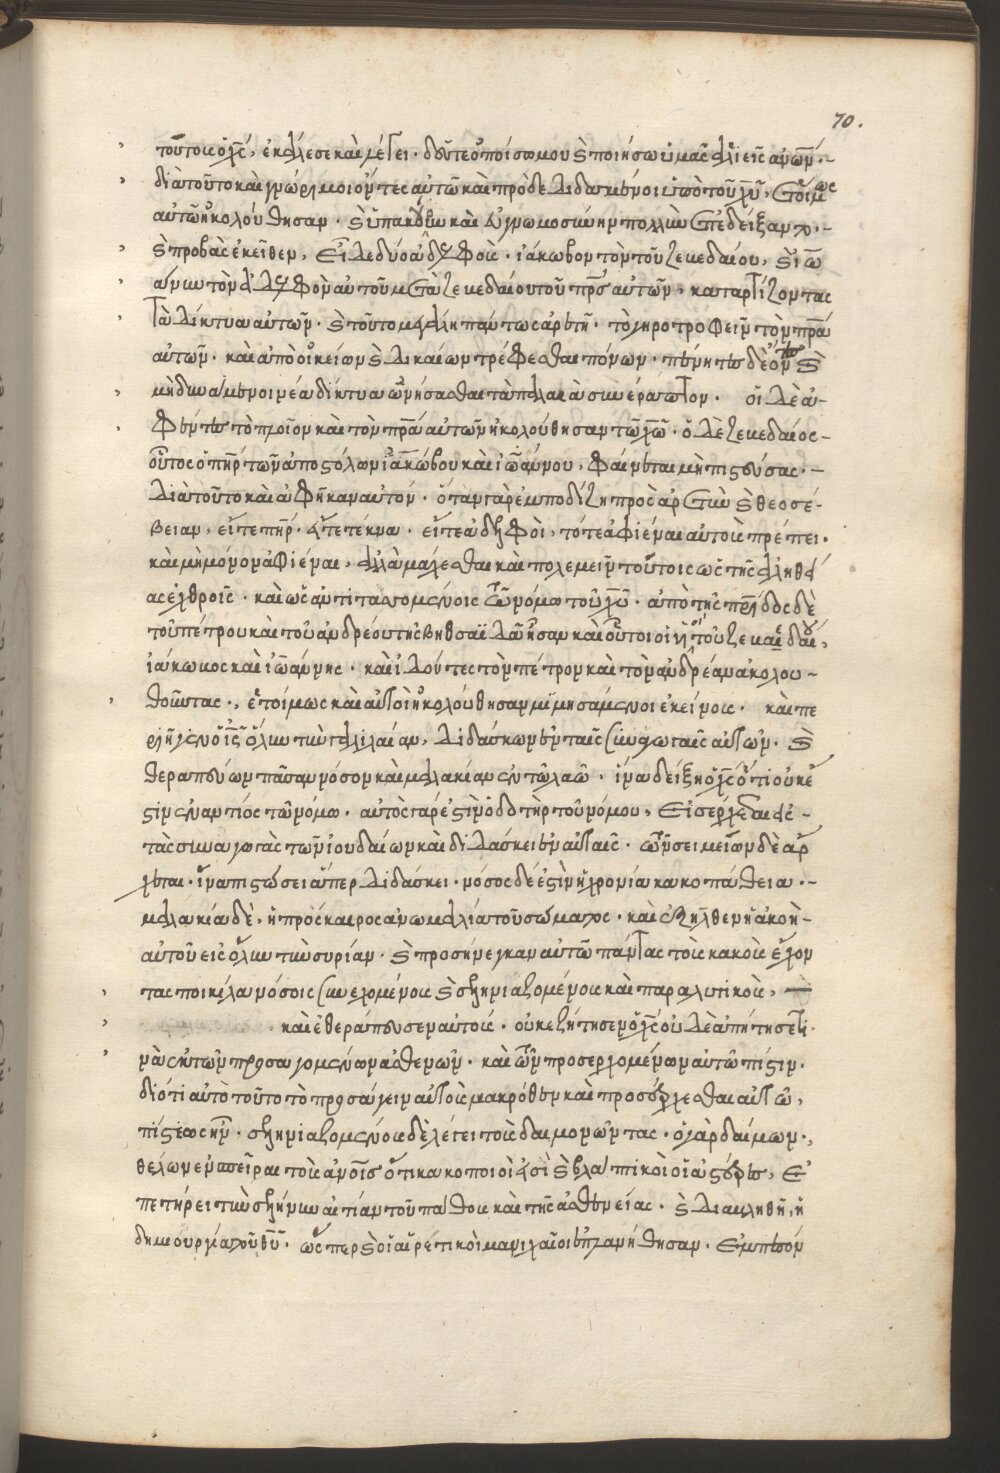 70.
τούτοις ὁ χς, ἐκάλεσε καὶ λέγει· δεῦτε ὀπίσω μου καὶ ποιήσω ὑμᾶς ἁλιεῖς ἀνων·
διὰ τοῦτο καὶ γνώριμοι ὄντες αὐτῶ καὶ προδεδιδαγμένοι ὑπὸ τοῦ χυ, ἑτοίμως
αὐτῶ ἠκολούθησαν· καὶ ὑπακοὴν καὶ εὐγνωμοσύνην πολλὴν ἐπεδείξαντο·
καὶ προβὰς ἐκεῖθεν, εἶδε δύο ἀδελφοὺς· ἰάκωβον τὸν τοῦ ζεβεδαίου, καὶ ἰω
άννην τὸν ἀδελφὸν αὐτοῦ μετὰ ζεβεδαίου τοῦ πρς αὐτῶν, καταρτίζοντας
τὰ δίκτυα αὐτῶν· καὶ τοῦτο μεγάλη πάντως ἀρετὴ· τὸ γηροτροφεῖν τὸν πρα
αὐτῶν· καὶ ἀπὸ οἰκείων καὶ δικαίων τρέφεσθαι πόνων· πένητες δὲ ὄντες καὶ
μὴ δυνάμενοι νέα δίκτυα ὠνήσασθαι τὰ παλαιὰ συνέραπτον· οἱ δὲ ἀ-
φέντες τὸ πλοῖον καὶ τὸν πρα αὐτῶν ἠκολούθησαν τῶ χω· ὁ δὲ ζεβεδαῖος
οὗτος ὁ πηρ τῶν ἀποστόλων ἰακώβου καὶ ἰωάννου, φαίνεται μὴ πιστεύσας·
διὰ τοῦτο καὶ ἀφῆκαν αὐτόν· ὅταν γὰρ ἐμποδίζη πρὸς ἀρετὴν καὶ θεοσέ-
βειαν, εἴτε πηρ· εἴτε τέκνα· εἴτε ἀδελφοὶ, τότε ἀφιέναι αὐτοὺς πρέπει·
καὶ μὴ μόνον ἀφιέναι, ἀλλὰ μάχεσθαι καὶ πολεμεῖν τούτοις ὡς τῆς ἀληθεί
ας ἐχθροῖς· καὶ ὡς ἀντιτασσομένοις τῶ νόμω τοῦ χυ· ἀπὸ τῆς πατρίδος δὲ
τοῦ πέτρου καὶ τοῦ ἀνδρέου τῆς βηθσαϊδᾶ ἦσαν καὶ οὗτοι οἱ υἱοὶ τοῦ ζεβεδαίου,
ἰάκωβος καὶ ἰωάννης· καὶ ἰδόντες τὸν πέτρον καὶ τὸν ἀνδρέαν ἀκολου-
θοῦντας, ἑτοίμως καὶ αὐτοὶ ἠκολούθησαν μιμησάμενοι ἐκείνους· καὶ πε
ριῆγεν ὁ ις ὅλην τὴν γαλιλαίαν, διδάσκων ἐν ταῖς συναγωγαῖς αὐτῶν· καὶ
θεραπεύων πᾶσαν νόσον καὶ μαλακίαν ἐν τῶ λαῶ· ἵνα δείξη ὁ χς ὅτι οὐκ ἔ
στιν ἐναντίος τῶ νόμω· αὐτὸς γάρ ἐστιν ὁ δοτὴρ τοῦ νόμου, εἰσέρχεται εἰς
τὰς συναγωγὰς τῶν ἰουδαίων καὶ διδάσκει ἐν αὐταῖς· τῶν σημείων δὲ ἄρ
χεται· ἵνα πιστώσει ἅπερ διδάσκει· νόσος δέ ἐστιν ἡ χρονία κακοπάθεια·
μαλακία δὲ, ἡ πρόσκαιρος ἀνωμαλία τοῦ σώματος· καὶ ἐξῆλθεν ἡ ἀκοὴ
αὐτοῦ εἰς ὅλην τὴν συρίαν· καὶ προσήνεγκαν αὐτῶ πάντας τοὺς κακοὺς ἔχον
τας ποικίλαις νόσοις συνεχομένους καὶ σεληνιαζομένους καὶ παραλυτικοὺς,
καὶ ἐθεράπευσεν αὐτούς· οὐκ ἐζήτησεν ὁ χς οὐδὲ ἀπήτησέ τι
νὰς ἐκ τῶν προσαγομένων ἀσθενῶν· καὶ τῶν προσερχομένων αὐτῶ πίστιν·
διότι αὐτὸ τοῦτο τὸ προσάγειν αὐτοὺς μακρόθεν καὶ προσέρχεσθαι αὐτῶ,
πίστεως ην· σεληνιαζομένους δὲ λέγει τοὺς δαιμονῶντας· ὁ γὰρ δαίμων,
θέλων ἐμπεῖραι τοὺς ανοῖς ὅτι κακοποιοὶ εἰσὶ καὶ βλαπτικοὶ οἱ ἀστέρες, ἐ
πετήρει τὴν σελήνην αἰτίαν τοῦ πάθους καὶ τῆς ἀσθενείας· καὶ διαβληθῆ ἡ
δημιουργία τοῦ θυ· ὥσπερ καὶ οἱ αἱρετικοὶ μανιχαῖοι ἐπλανήθησαν·